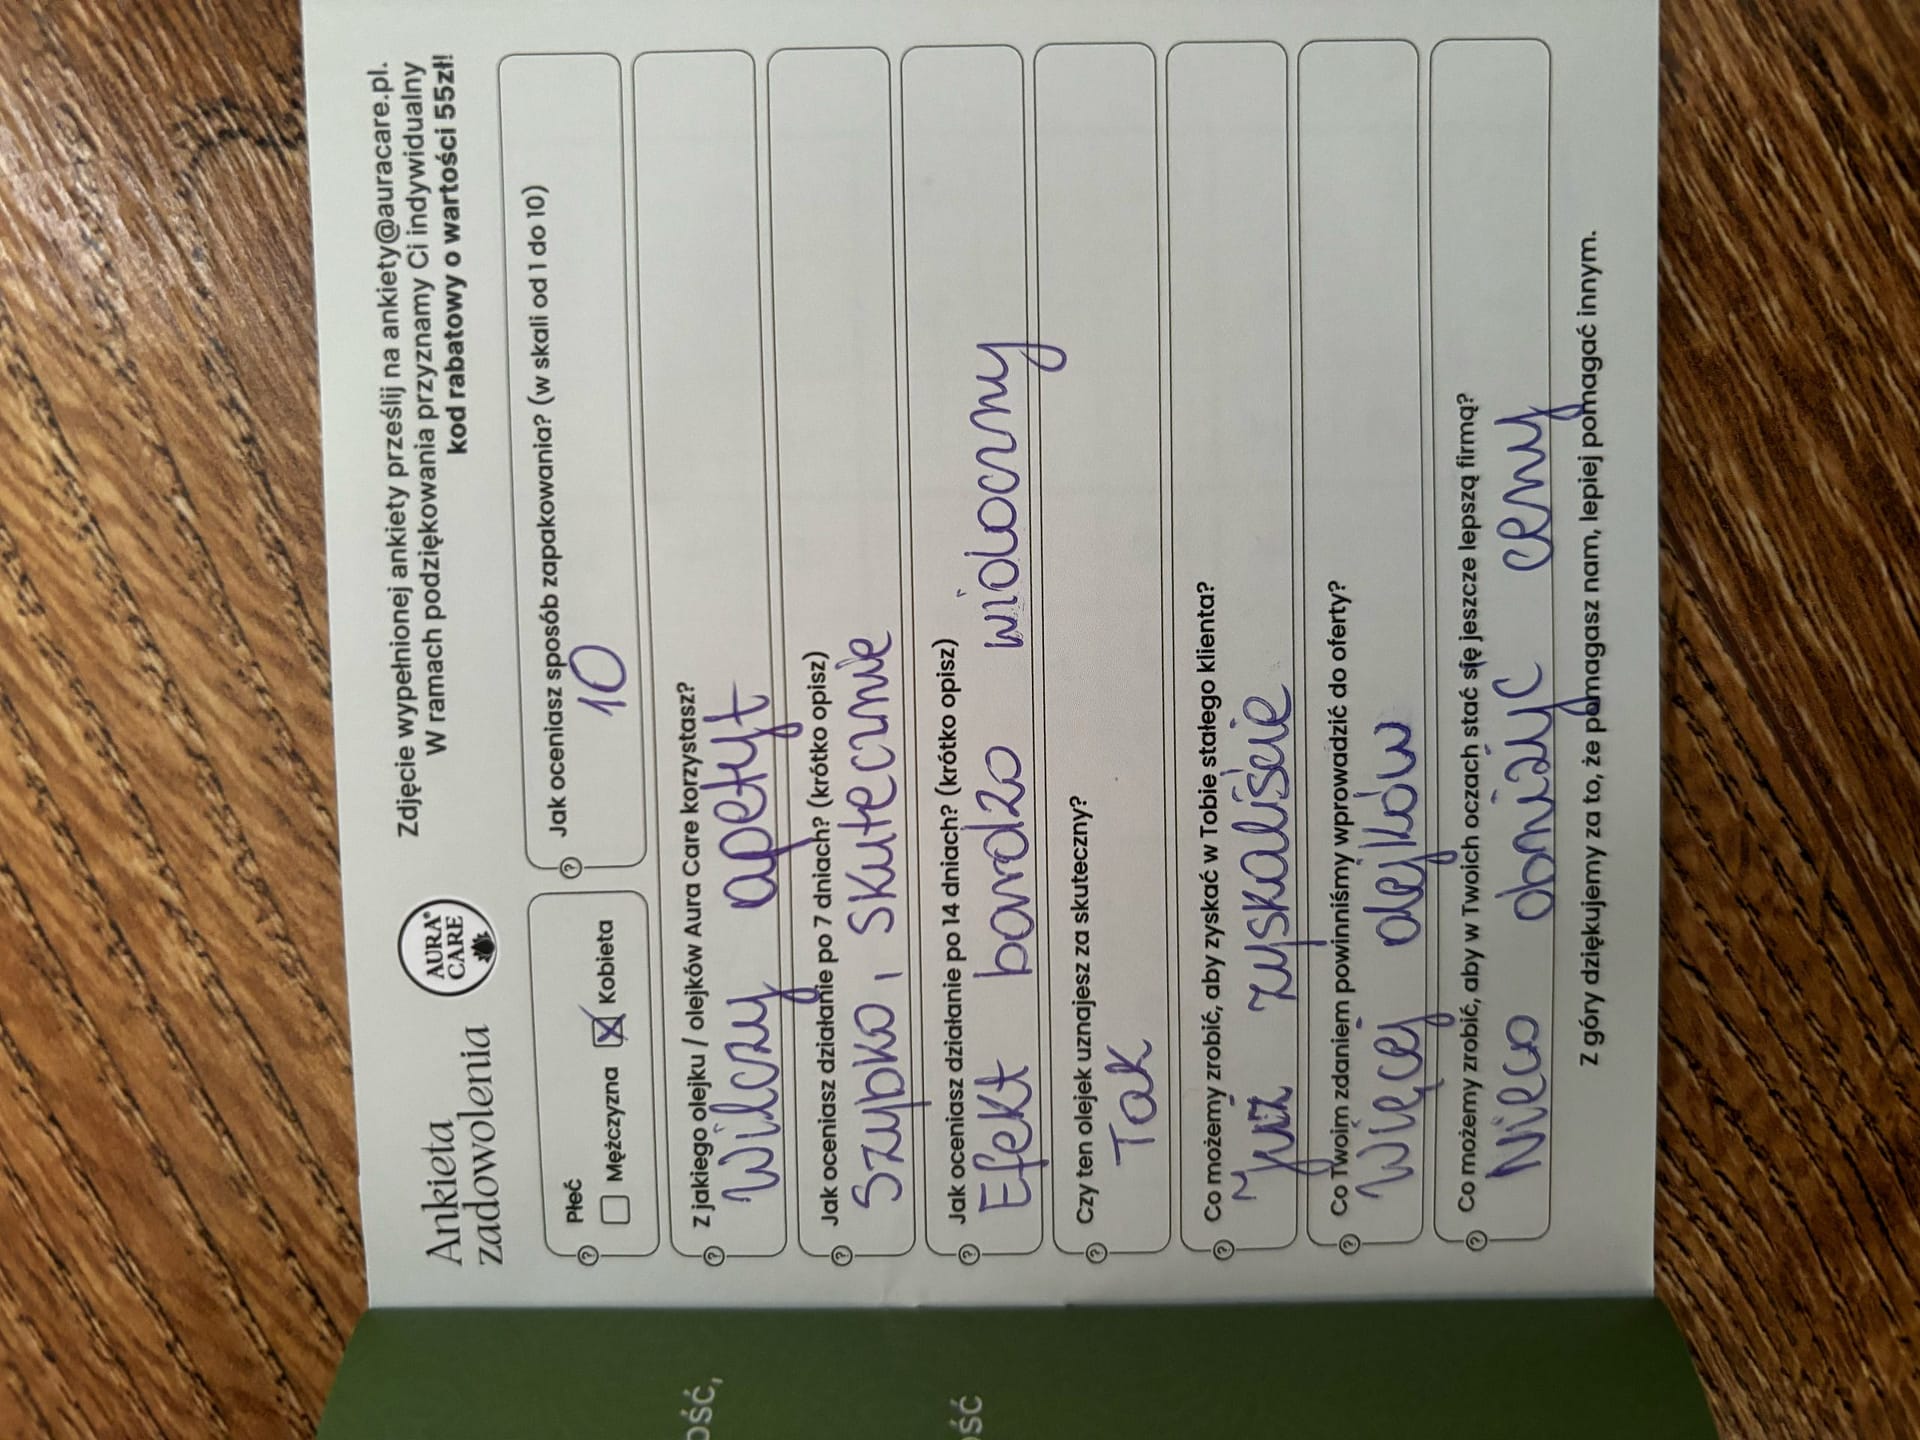 Ankieta
zadowolenia
AURA® CARE
Zdjęcie wypełnionej ankiety prześlij na ankiety@auracare.pl.
W ramach podziękowania przyznamy Ci indywidualny
kod rabatowy o wartości 55zł!
Płeć
Mężczyzna Kobieta
Jak oceniasz sposób zapakowania? (w skali od 1 do 10)
10
Z jakiego olejku / olejków Aura Care korzystasz?
Wilczy apetyt
Jak oceniasz działanie po 7 dniach? (krótko opisz)
Szybko, skutecznie
Jak oceniasz działanie po 14 dniach? (krótko opisz)
Efekt bardzo widoczny
Czy ten olejek uznajesz za skuteczny?
Tak
Co możemy zrobić, aby zyskać w Tobie stałego klienta?
Już zyskaliście
Co Twoim zdaniem powinniśmy wprowadzić do oferty?
Więcej olejków
Co możemy zrobić, aby w Twoich oczach stać się jeszcze lepszą firmą?
Nieco obniżyć ceny
Z góry dziękujemy za to, że pomagasz nam, lepiej pomagać innym.
ość,
ość